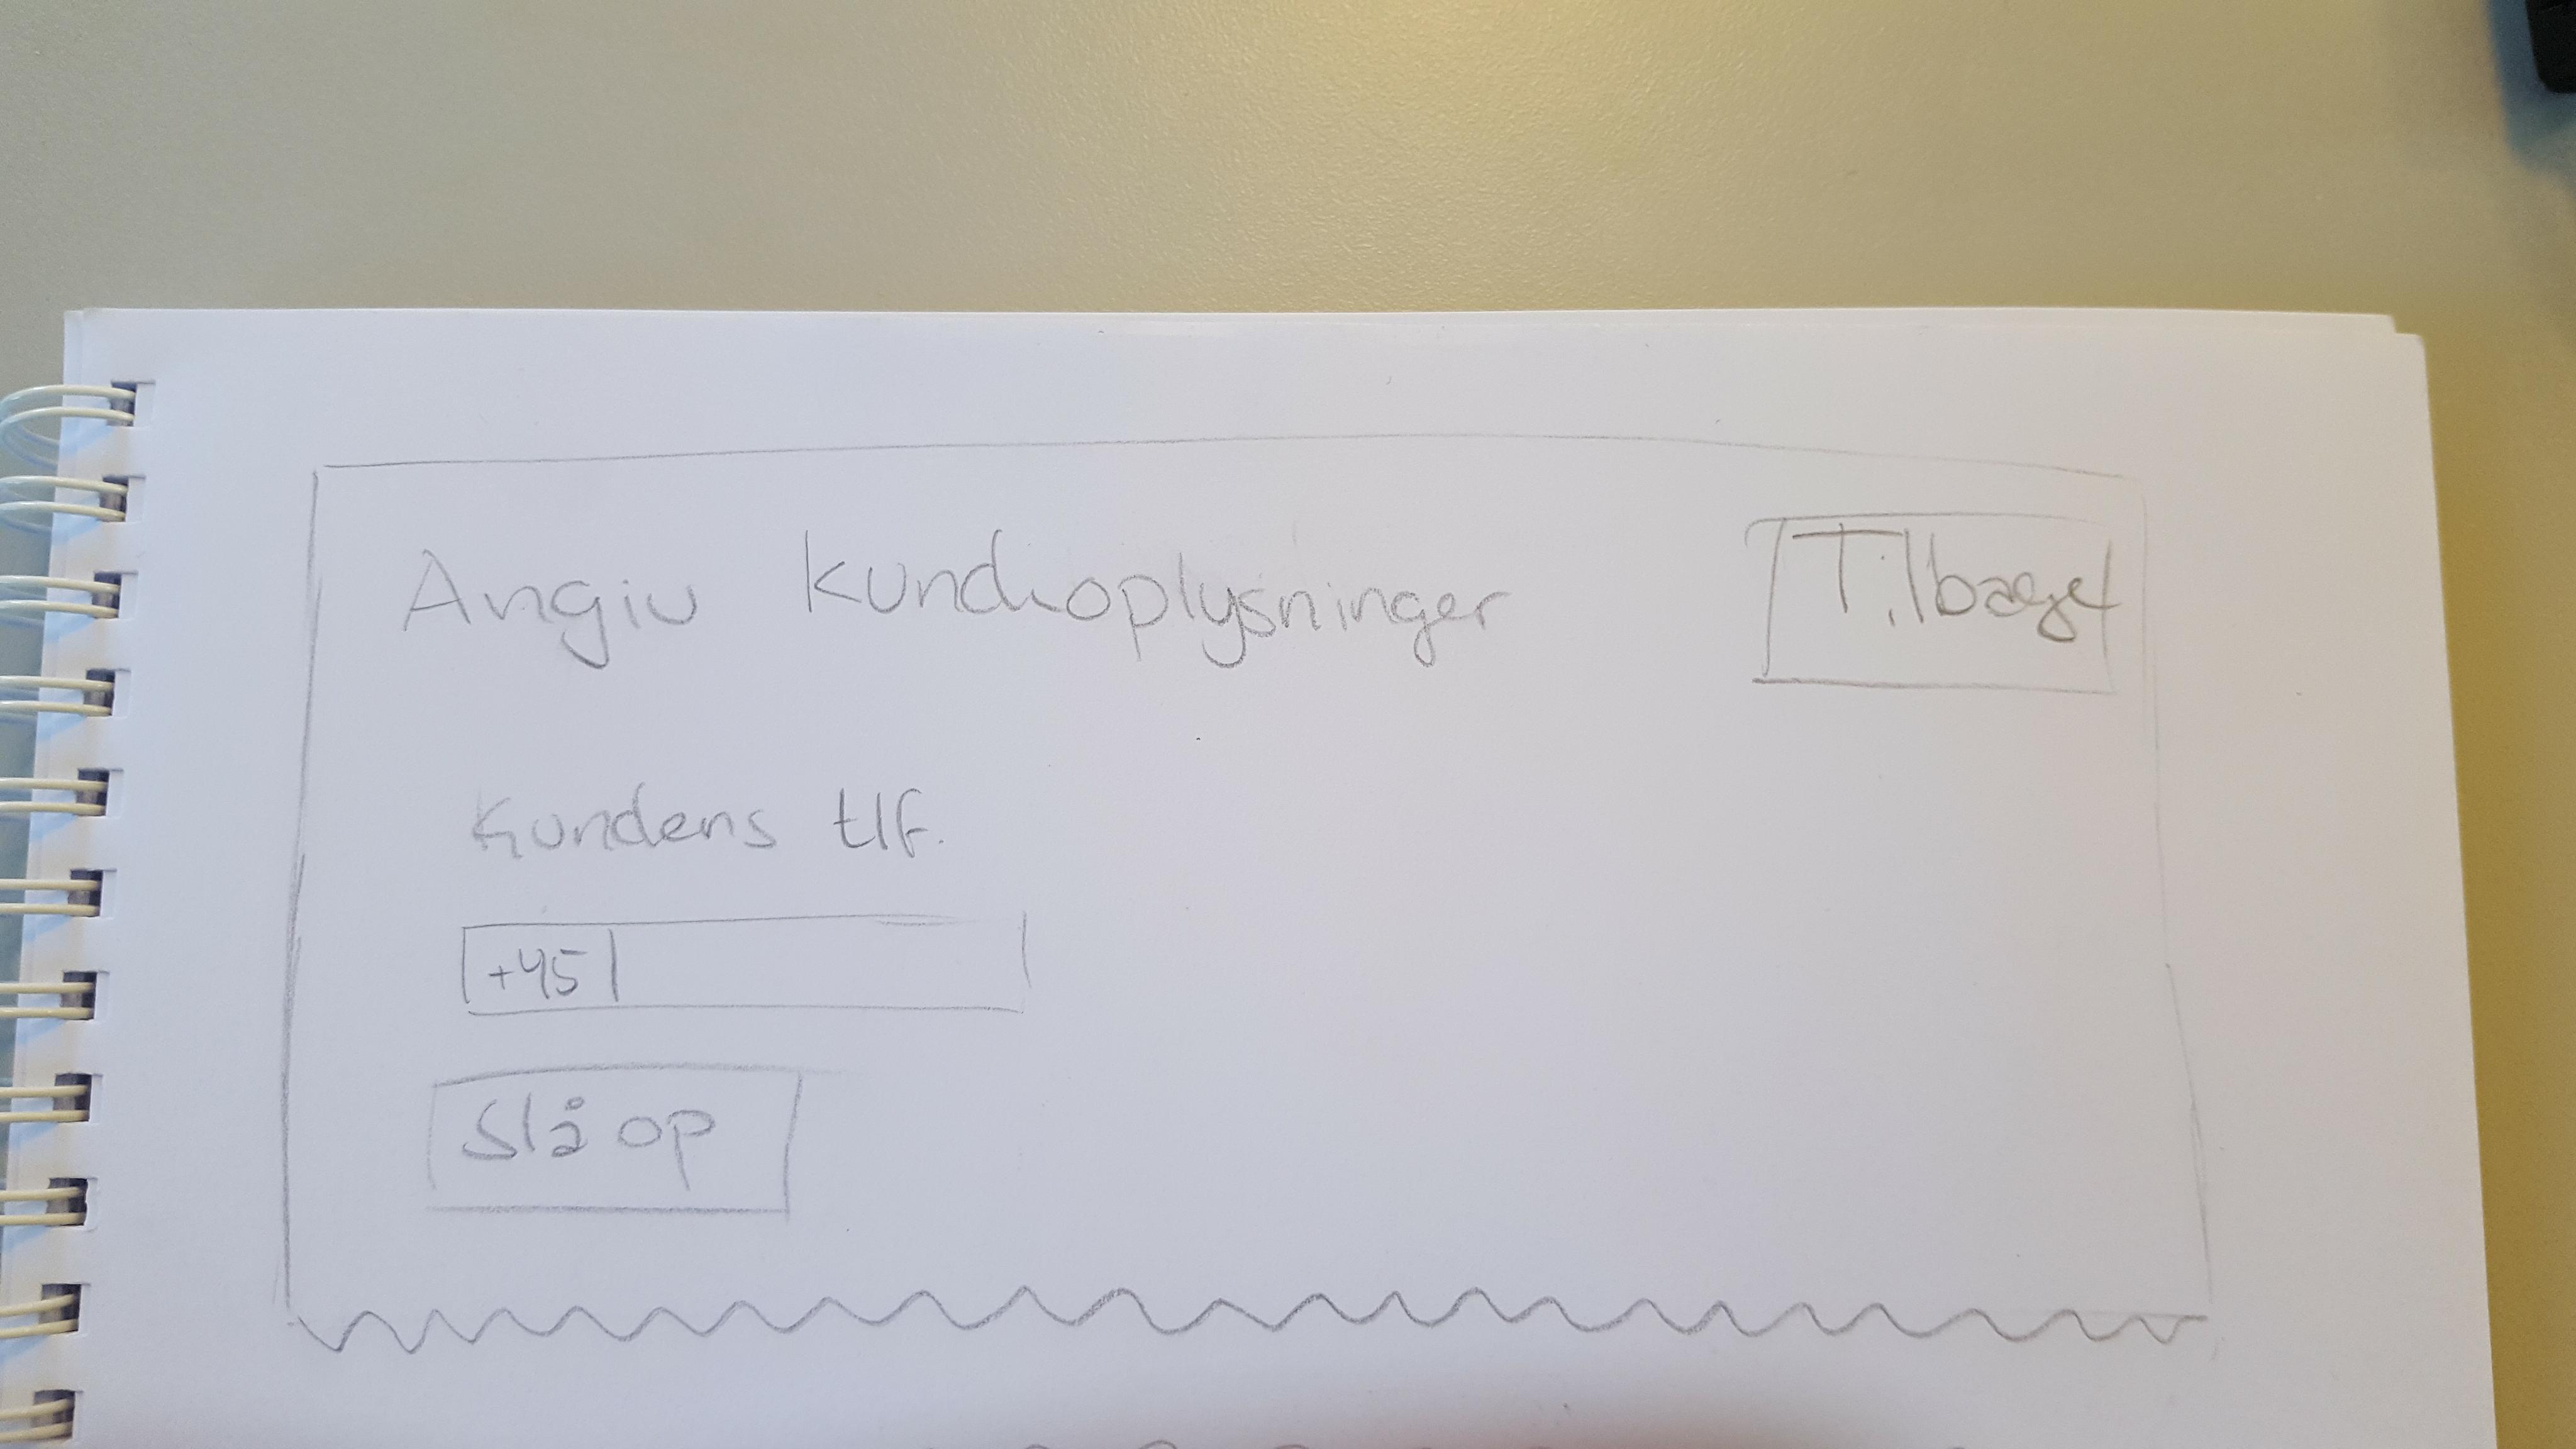 Angiv kundeoplysninger
Tilbage
Kundens tlf.
+45
Slå op